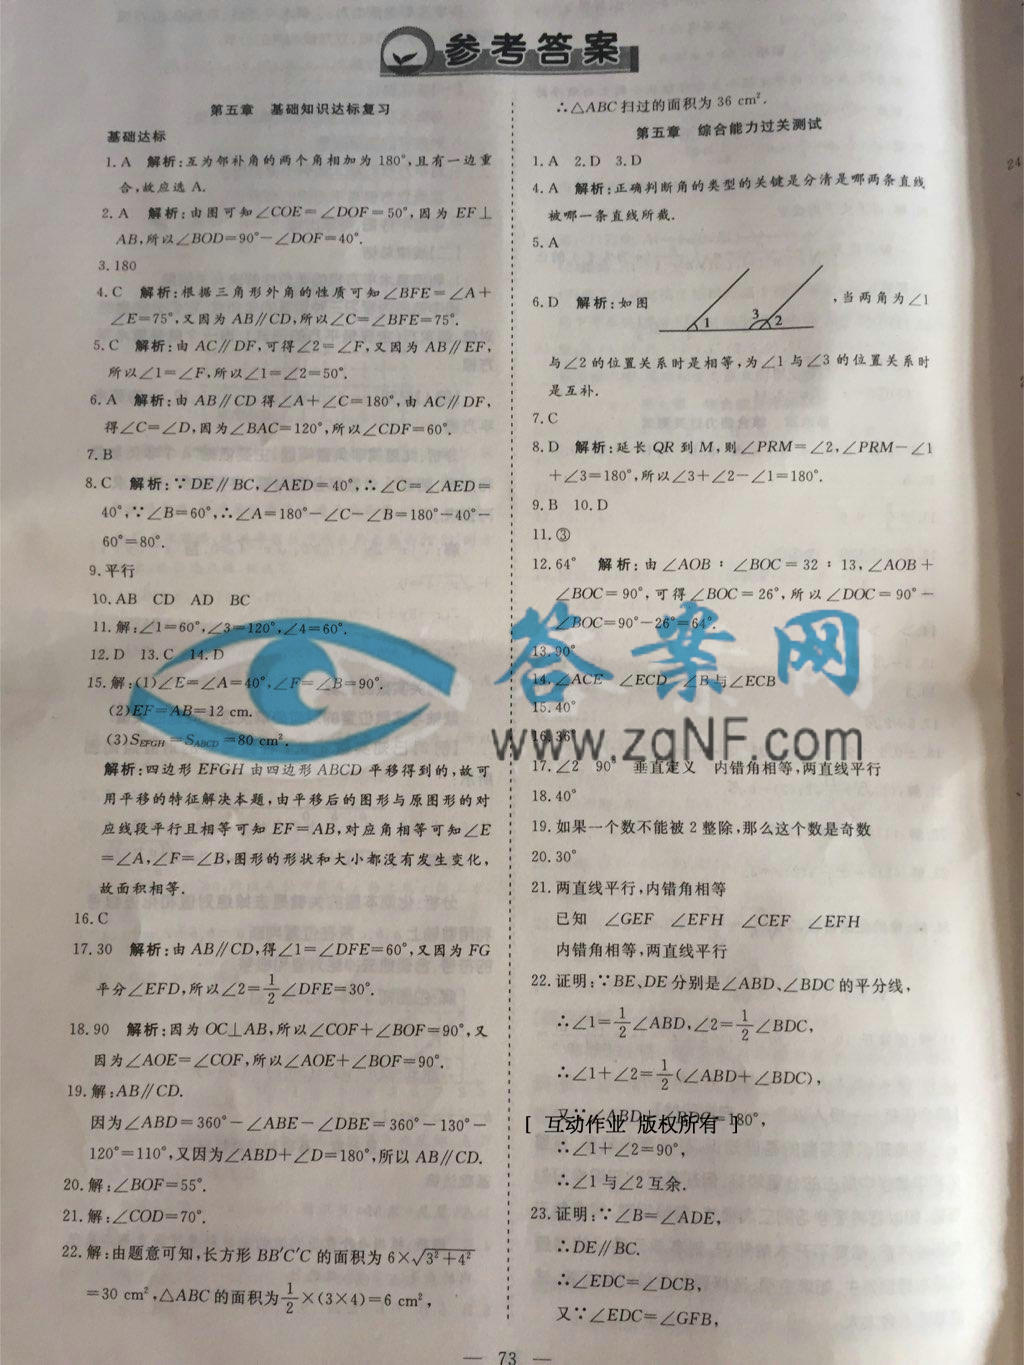 参考答案
第五章 基础知识达标复习
基础达标
1. A 解析:互为邻补角的两个角相加为 180°,且有一边重
合,故应选 A.
2. A 解析:由图可知∠COE=∠DOF=50°,因为 EF⊥
AB,所以∠BOD=90°-∠DOF=40°.
3. 180
4. C 解析:根据三角形外角的性质可知∠BFE=∠A+
∠E=75°,又因为 AB∥CD,所以∠C=∠BFE=75°.
5. C 解析:由 AC∥DF,可得∠2=∠F,又因为 AB∥EF,
所以∠1=∠F,所以∠1=∠2=50°.
6. A 解析:由 AB∥CD 得∠A+∠C=180°,由 AC∥DF,
得∠C=∠D,因为∠BAC=120°,所以∠CDF=60°.
7. B
8. C 解析:∵DE∥BC,∠AED=40°,∴∠C=∠AED=
40°,∵∠B=60°,∴∠A=180°-∠C-∠B=180°-40°-
60°=80°.
9. 平行
10. AB CD AD BC
11. 解:∠1=60°,∠3=120°,∠4=60°.
12. D 13. C 14. D
15. 解:(1)∠E=∠A=40°,∠F=∠B=90°.
(2)EF=AB=12 cm.
(3)S_EFGH=S_ABCD=80 cm².
解析:四边形 EFGH 由四边形 ABCD 平移得到的,故可
用平移的特征解决本题,由平移后的图形与原图形的对
应线段平行且相等可知 EF=AB,对应角相等可知∠E
=∠A,∠F=∠B,图形的形状和大小都没有发生变化,
故面积相等.
16. C
17. 30 解析:由 AB∥CD,得∠1=∠DFE=60°,又因为 FG
平分∠EFD,所以∠2=1/2∠DFE=30°.
18. 90 解析:因为 OC⊥AB,所以∠COF+∠BOF=90°,又
因为∠AOE=∠COF,所以∠AOE+∠BOF=90°.
19. 解:AB∥CD.
因为∠ABD=360°-∠ABE-∠DBE=360°-130°-
120°=110°,又因为∠ABD+∠D=180°,所以 AB∥CD.
20. 解:∠BOF=55°.
21. 解:∠COD=70°.
22. 解:由题意可知,长方形 BB′C′C 的面积为 6×√(3²+4²)
=30 cm²,△ABC 的面积为1/2×(3×4)=6 cm²,
∴△ABC 扫过的面积为 36 cm².
第五章 综合能力过关测试
1. A 2. D 3. D
4. A 解析:正确判断角的类型的关键是分清是哪两条直线
被哪一条直线所截.
5. A
6. D 解析:如图 1 3 2 ,当两角为∠1
与∠2 的位置关系时是相等,为∠1 与∠3 的位置关系时
是互补.
7. C
8. D 解析:延长 QR 到 M,则∠PRM=∠2,∠PRM-∠1
+∠3=180°,所以∠3+∠2-∠1=180°.
9. B 10. D
11. ③
12. 64° 解析:由∠AOB∶∠BOC=32∶13,∠AOB+
∠BOC=90°,可得∠BOC=26°,所以∠DOC=90°-
∠BOC=90°-26°=64°.
13. 90°
14. ∠ACE ∠ECD ∠B 与∠ECB
15. 40°
16. 36°
17. ∠2 90° 垂直定义 内错角相等,两直线平行
18. 40°
19. 如果一个数不能被 2 整除,那么这个数是奇数
20. 30°
21. 两直线平行,内错角相等
已知 ∠GEF ∠EFH ∠CEF ∠EFH
内错角相等,两直线平行
22. 证明:∵BE、DE 分别是∠ABD、∠BDC 的平分线,
∴∠1=1/2∠ABD,∠2=1/2∠BDC,
∴∠1+∠2=1/2(∠ABD+∠BDC),
又∵∠ABD+∠BDC=180°,
∴∠1+∠2=90°,
∴∠1 与∠2 互余.
23. 证明:∵∠B=∠ADE,
∴DE∥BC.
∴∠EDC=∠DCB,
又∵∠EDC=∠GFB,
— 73 —
答案网
www.zqNF.com
[ 互动作业 版权所有 ]
24